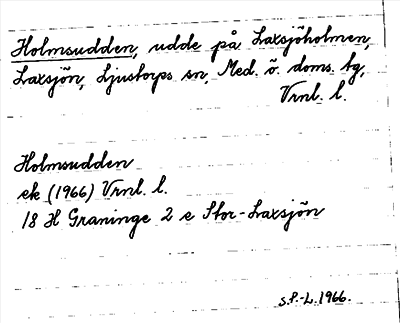 Holmsudden, udde på Laxsjöholmen,
Laxsjön, Ljustorps sn, Med. ö. doms. tg,
Vrnl. l.
Holmsudden
ek (1966) Vrnl. l.
18 H Graninge 2 e Stor-Laxsjön
S.P.-L. 1966.